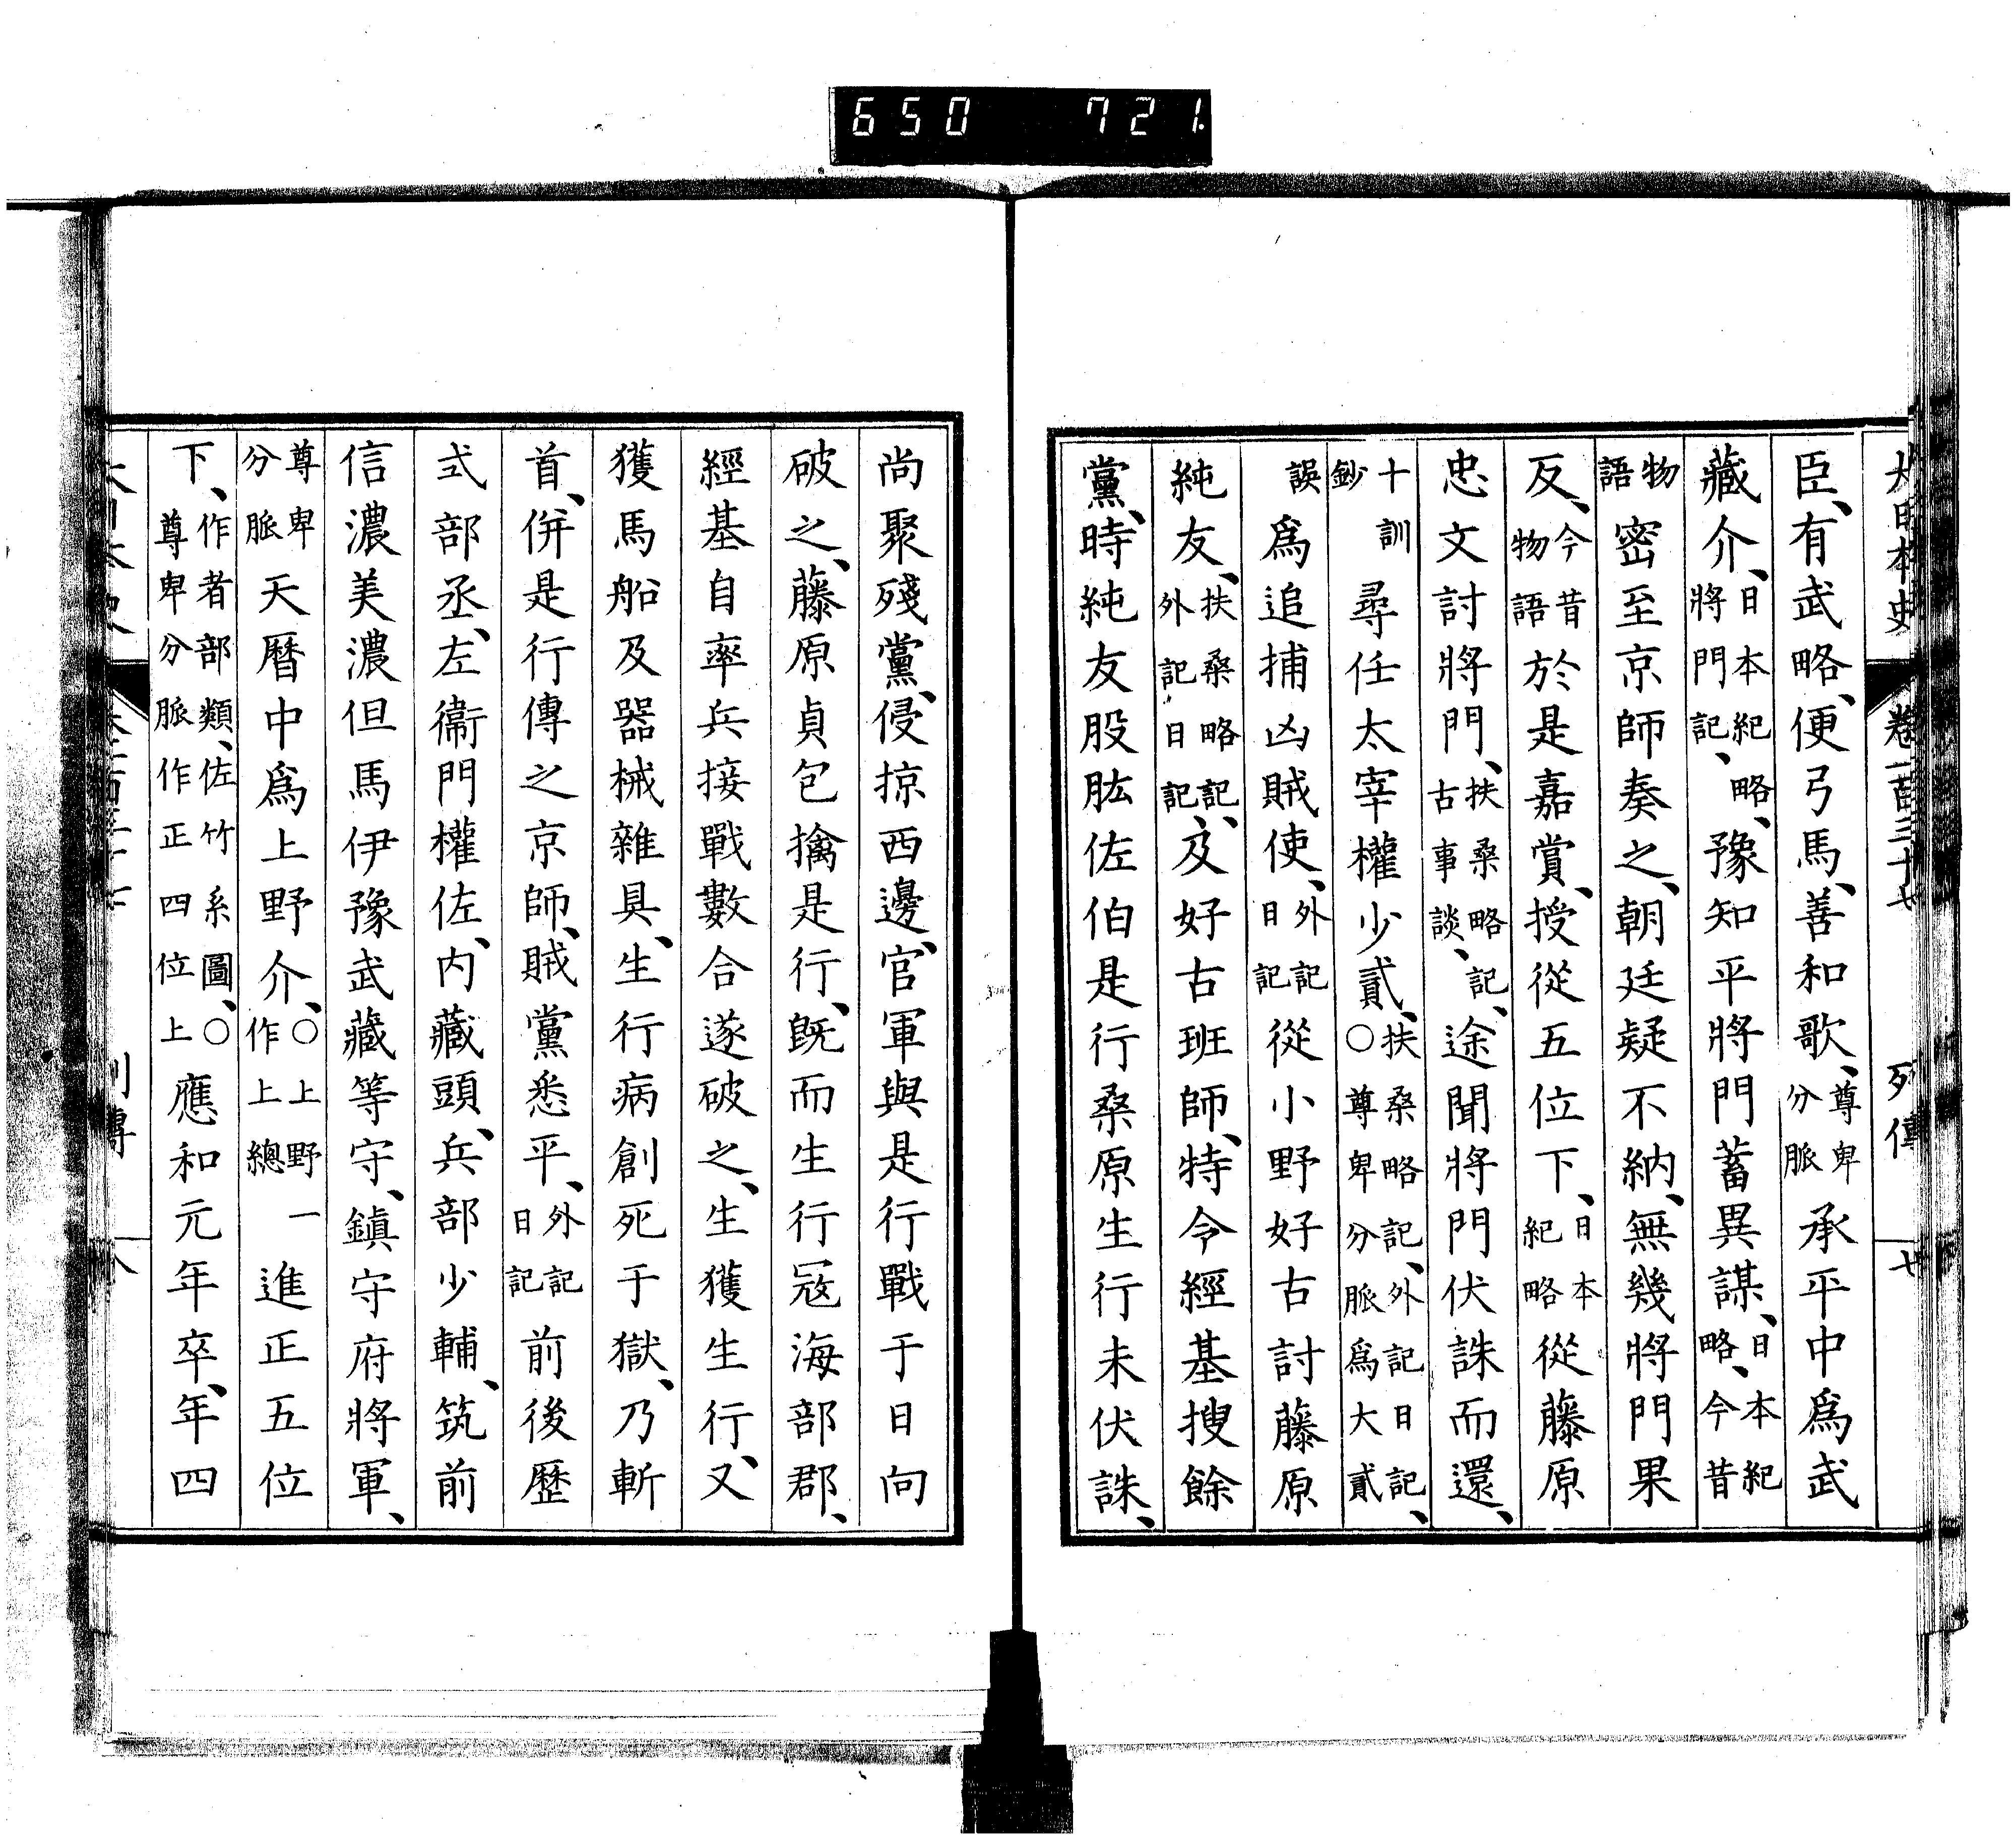 650 721.
大日本史 卷一百三十七 列傳 七
臣、有武略、便弓馬、善和歌、尊卑分脈承平中爲武
藏介、日本紀略、將門記、豫知平將門蓄異謀、日本紀略、今昔
物語密至京師奏之、朝廷疑不納、無幾將門果
反、今昔物語於是嘉賞、授從五位下、日本紀略從藤原
忠文討將門、扶桑略記、古事談、途聞將門伏誅而還、
十訓鈔尋任太宰權少貳、扶桑略記、外記日記、○尊卑分脈爲大貳
誤爲追捕凶賊使、外記日記從小野好古討藤原
純友、扶桑略記、外記日記、及好古班師、特令經基搜餘
黨、時純友股肱佐伯是行桑原生行未伏誅、
尚聚殘黨、侵掠西邊、官軍與是行戰于日向
破之、藤原貞包擒是行、既而生行寇海部郡、
經基自率兵接戰數合遂破之、生獲生行、又
獲馬船及器械雜具、生行病創死于獄、乃斬
首、併是行傳之京師、賊黨悉平、外記日記前後歷
式部丞、左衞門權佐、内藏頭、兵部少輔、筑前
信濃美濃但馬伊豫武藏等守、鎮守府將軍、
尊卑分脈天曆中爲上野介、○上野一作上總進正五位
下、作者部類、佐竹系圖、○尊卑分脈作正四位上應和元年卒、年四